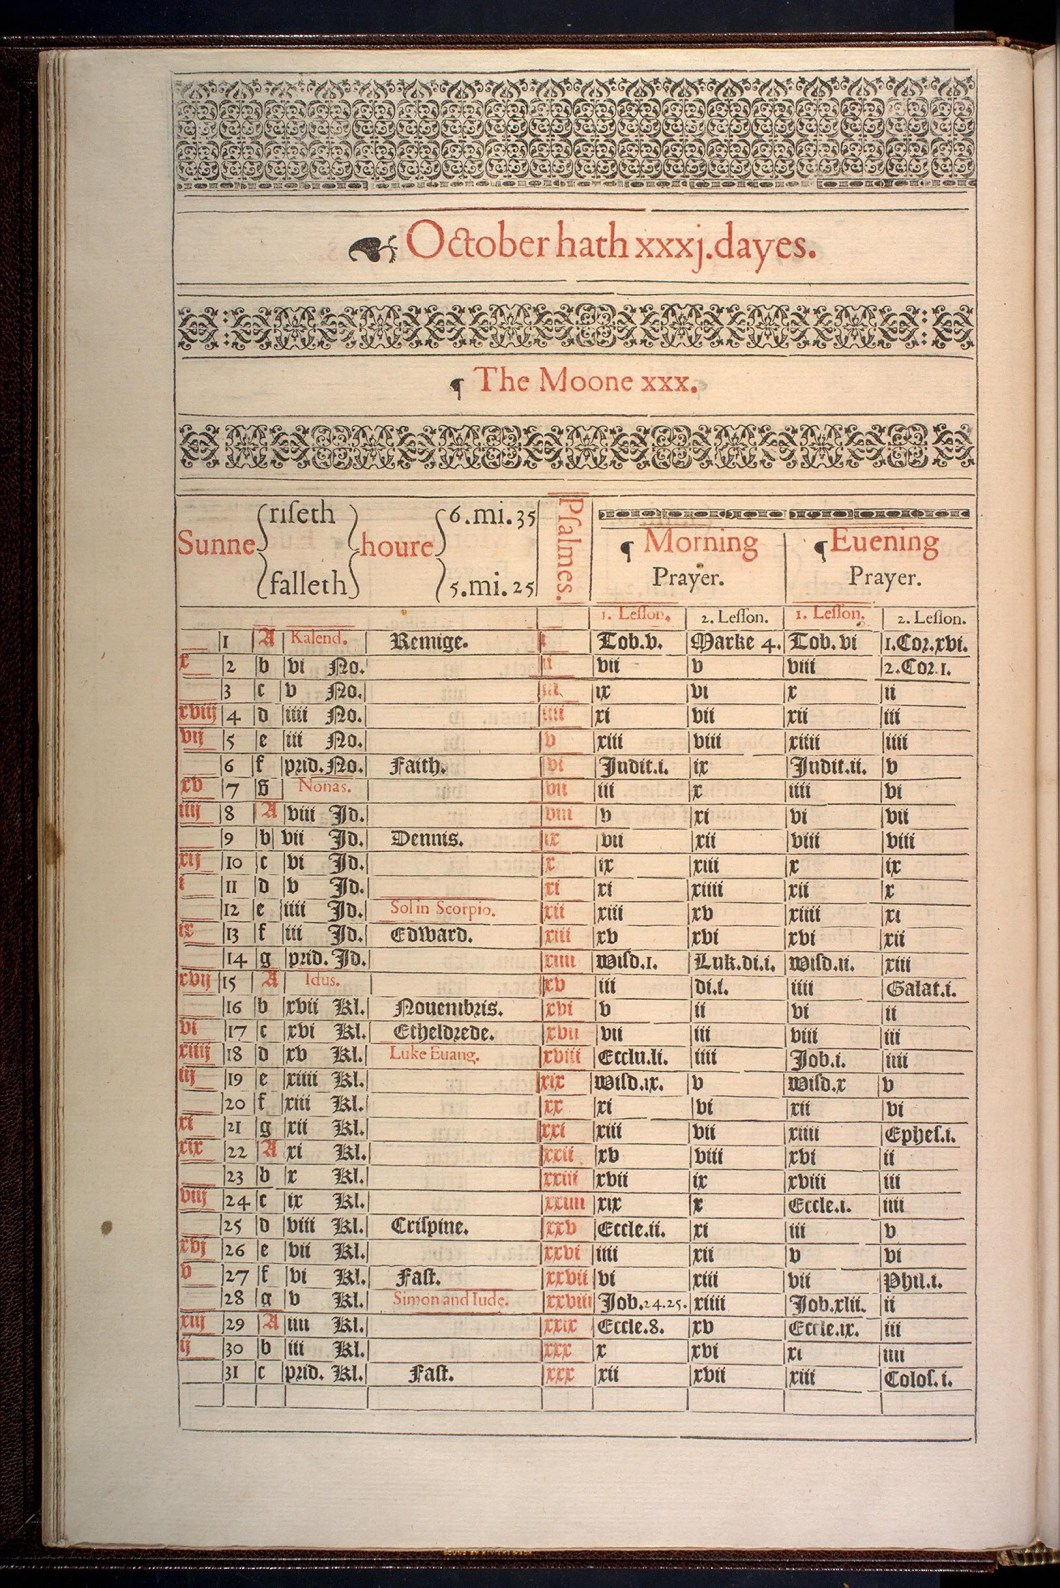 October hath xxxj.dayes.
¶ The Moone xxx.
Sunne riſeth falleth houre 6.mi.35 5.mi.25 Pſalmes. ¶ Morning Prayer. ¶ Euening Prayer.
1. Leſſon. 2. Leſſon. 1. Leſſon. 2. Leſſon.
1 A Kalend. Remige. i Tob.v. Marke 4. Tob.vi 1.Cor.xvi.
x 2 b vi No. ii vii v viii 2.Cor.1.
3 c v No. iii ix vi x ii
xviij 4 d iiii No. iiii xi vii xii iii
vij 5 e iii No. v xiii viii xiiii iiii
6 f prid.No. Faith. vi Judit.i. ix Judit.ii. v
xv 7 g Nonas. vii iii x iiii vi
iiij 8 A viii Jd. viii v xi vi vii
9 b vii Jd. Dennis. ix vii xii viii viii
xij 10 c vi Jd. x ix xiii x ix
i 11 d v Jd. xi xi xiiii xii x
12 e iiii Jd. Sol in Scorpio. xii xiii xv xiiii xi
ix 13 f iii Jd. Edward. xiii xv xvi xvi xii
14 g prid. Jd. xiiii Wiſd.1. Luk.di.i. Wiſd.ii. xiii
xvij 15 A Idus. xv iii di.i. iiii Galat.i.
16 b xvii Kl. Nouembris. xvi v ii vi ii
vi 17 c xvi Kl. Etheldrede. xvii vii iii viii iii
xiiij 18 d xv Kl. Luke Euang. xviii Ecclu.li. iiii Job.i. iiii
iij 19 e xiiii Kl. xix Wiſd.ix. v Wiſd.x v
20 f xiii Kl. xx xi vi xii vi
xi 21 g xii Kl. xxi xiii vii xiiii Epheſ.i.
xix 22 A xi Kl. xxii xv viii xvi ii
23 b x Kl. xxiii xvii ix xviii iii
viij 24 c ix Kl. xxiiii xix x Eccle.i. iiii
25 d viii Kl. Criſpine. xxv Eccle.ii. xi iii v
xvj 26 e vii Kl. xxvi iiii xii v vi
v 27 f vi Kl. Faſt. xxvii vi xiii vii Phil.i.
28 g v Kl. Simon and Iude. xxviii Job.24.25. xiiii Job.xlii. ii
xiij 29 A iiii Kl. xxix Eccle.8. xv Eccle.ix. iii
ij 30 b iii Kl. xxx x xvi xi iiii
31 c prid. Kl. Faſt. xxx xii xvii xiii Coloſ.i.